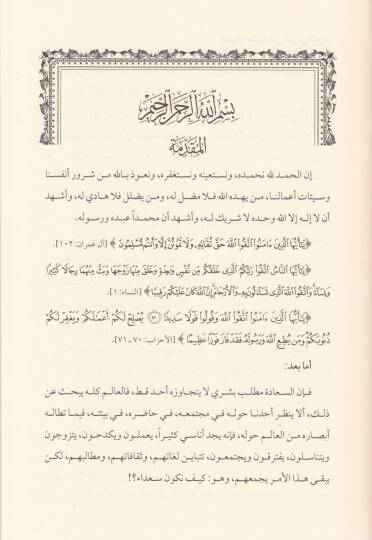 بسم الله الرحمن الرحيم
المقدمة
إن الحمد لله نحمده، ونستعينه ونستغفره، ونعوذ بالله من شرور أنفسنا
وسيئات أعمالنا، من يهده الله فلا مضل له، ومن يضلل فلا هادي له، وأشهد
أن لا إله إلا الله وحده لا شريك له، وأشهد أن محمداً عبده ورسوله.
﴿يَٰٓأَيُّهَا ٱلَّذِينَ ءَامَنُوا۟ ٱتَّقُوا۟ ٱللَّهَ حَقَّ تُقَاتِهِۦ وَلَا تَمُوتُنَّ إِلَّا وَأَنتُم مُّسْلِمُونَ﴾ [آل عمران: ١٠٢].
﴿يَٰٓأَيُّهَا ٱلنَّاسُ ٱتَّقُوا۟ رَبَّكُمُ ٱلَّذِى خَلَقَكُم مِّن نَّفْسٍ وَٰحِدَةٍ وَخَلَقَ مِنْهَا زَوْجَهَا وَبَثَّ مِنْهُمَا رِجَالًا كَثِيرًا
وَنِسَآءً وَٱتَّقُوا۟ ٱللَّهَ ٱلَّذِى تَسَآءَلُونَ بِهِۦ وَٱلْأَرْحَامَ إِنَّ ٱللَّهَ كَانَ عَلَيْكُمْ رَقِيبًا﴾ [النساء: ١].
﴿يَٰٓأَيُّهَا ٱلَّذِينَ ءَامَنُوا۟ ٱتَّقُوا۟ ٱللَّهَ وَقُولُوا۟ قَوْلًا سَدِيدًا ۝٧٠ يُصْلِحْ لَكُمْ أَعْمَٰلَكُمْ وَيَغْفِرْ لَكُمْ
ذُنُوبَكُمْ وَمَن يُطِعِ ٱللَّهَ وَرَسُولَهُۥ فَقَدْ فَازَ فَوْزًا عَظِيمًا﴾ [الأحزاب: ٧٠-٧١].
أما بعد:
فإن السعادة مطلب بشري لا يتجاوزه أحد قط، فالعالم كله يبحث عن
ذلك، ألا ينظر أحدنا حوله في مجتمعه، في حاضره، في بيئته، فيما تطاله
أبصاره من العالم حوله، فإنه يجد أناسي كثيراً، يعملون ويكدحون، يتزوجون
ويتناسلون، يفترقون ويجتمعون، تتباين لغاتهم، وثقافاتهم، ومطالبهم، لكن
يبقى هذا الأمر يجمعهم، وهو: كيف نكون سعداء؟!